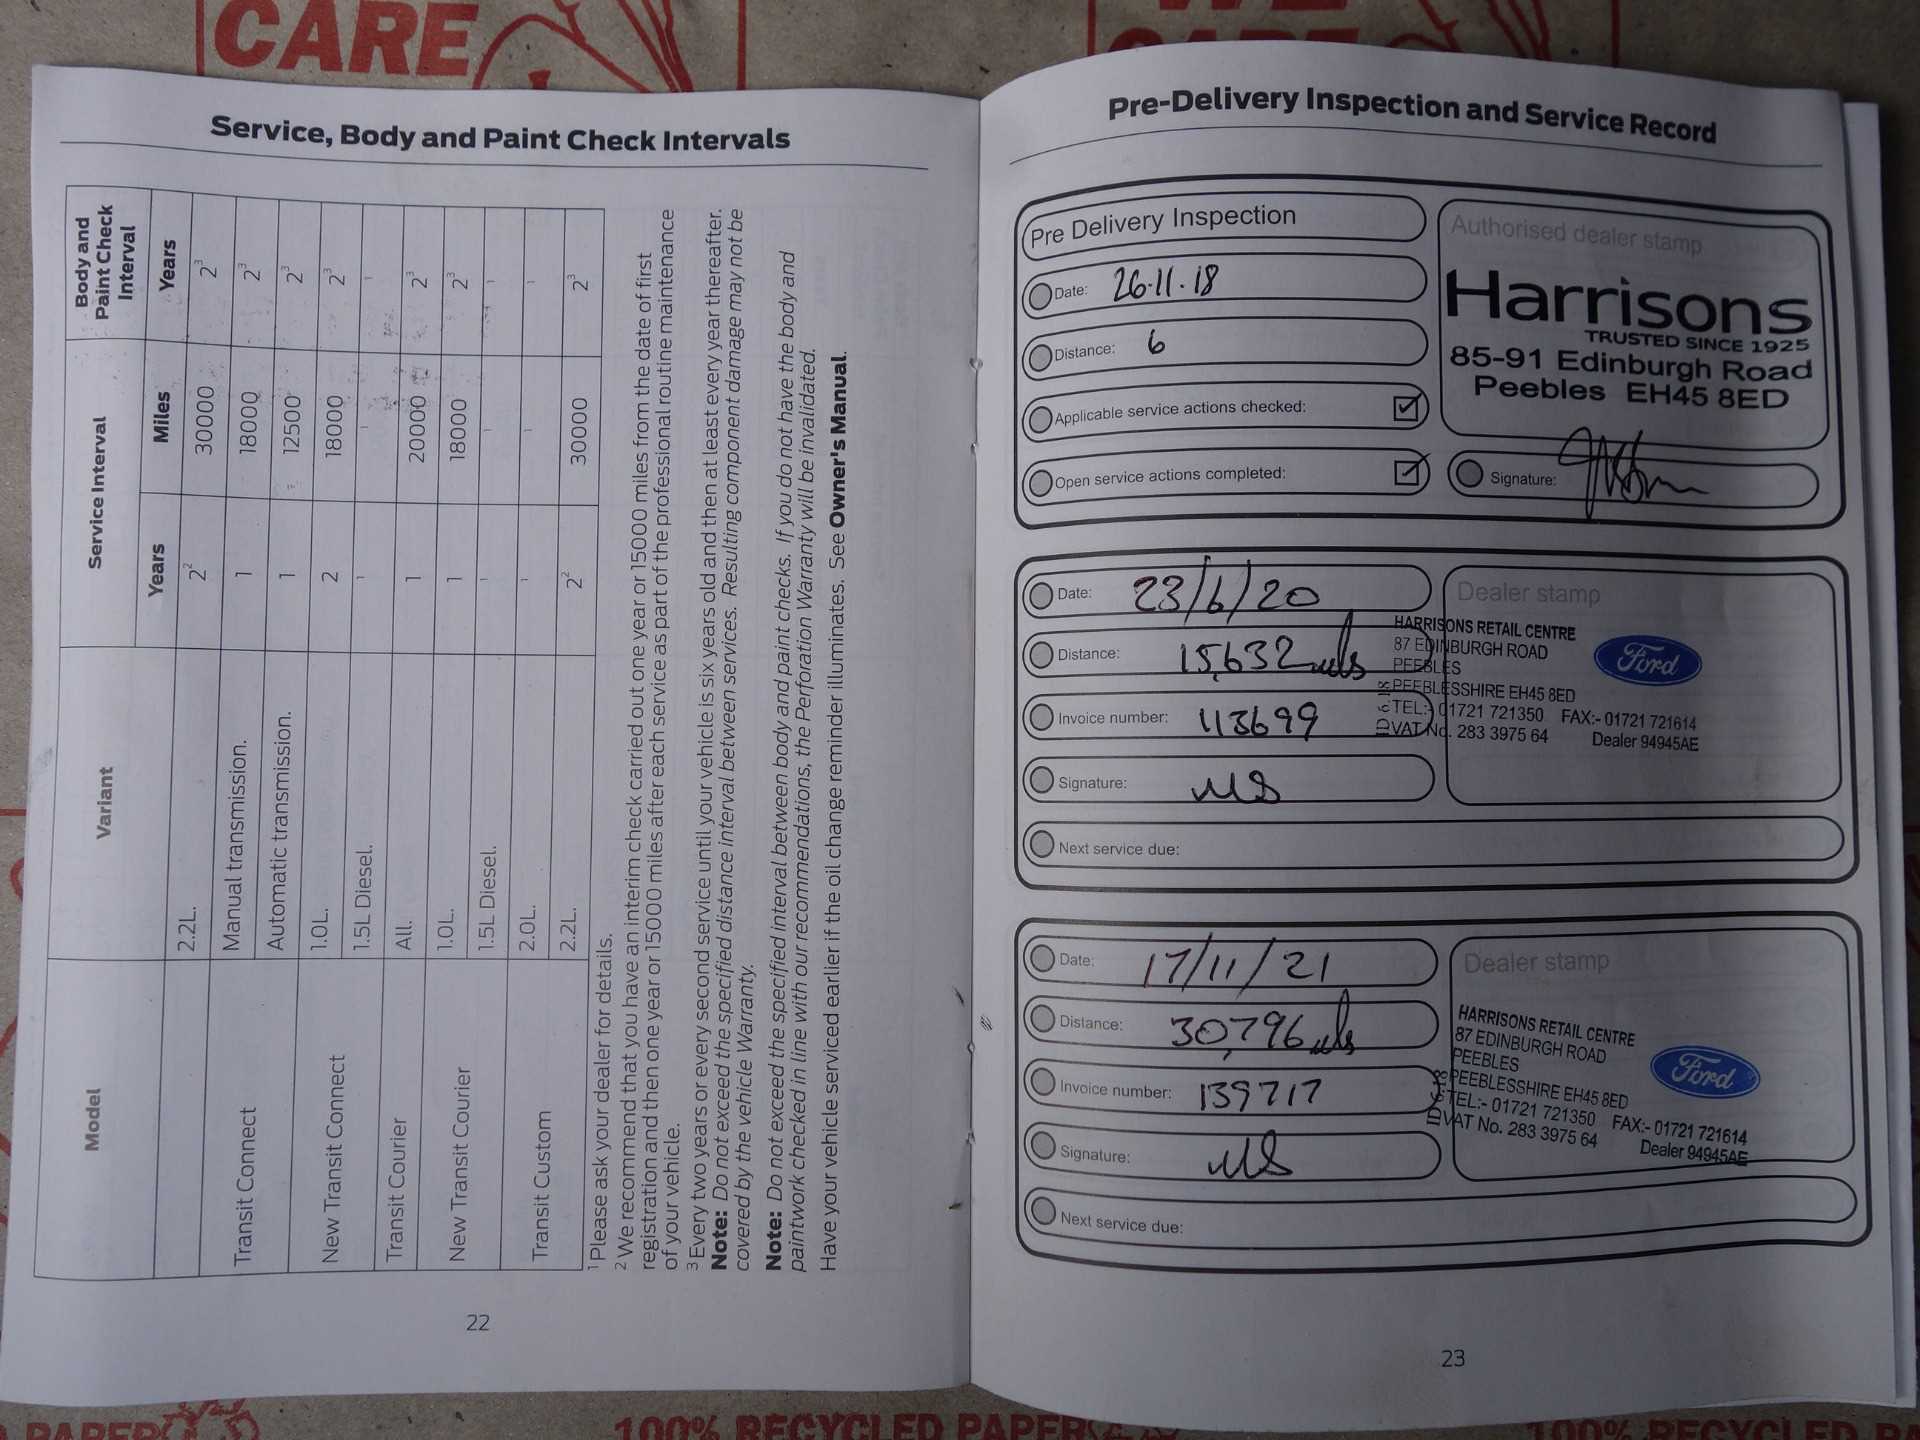 CARE
WE
CARE
Service, Body and Paint Check Intervals
Model
Variant
Service Interval
Body and Paint Check Interval
Years
Miles
Years
2.2L.
2²
30000
2³
Transit Connect
Manual transmission.
1
18000
2³
Automatic transmission.
1
12500
2³
New Transit Connect
1.0L.
2
18000
2³
1.5L Diesel.
1
1
1
Transit Courier
All.
1
20000
2³
New Transit Courier
1.0L.
1
18000
2³
1.5L Diesel.
1
1
1
Transit Custom
2.0L.
1
1
1
2.2L.
2²
30000
2³
1 Please ask your dealer for details.
2 We recommend that you have an interim check carried out one year or 15000 miles from the date of first
registration and then one year or 15000 miles after each service as part of the professional routine maintenance
of your vehicle.
3 Every two years or every second service until your vehicle is six years old and then at least every year thereafter.
Note: Do not exceed the specified distance interval between services. Resulting component damage may not be
covered by the vehicle Warranty.
Note: Do not exceed the specified interval between body and paint checks. If you do not have the body and
paintwork checked in line with our recommendations, the Perforation Warranty will be invalidated.
Have your vehicle serviced earlier if the oil change reminder illuminates. See Owner's Manual.
22
Pre-Delivery Inspection and Service Record
Pre Delivery Inspection
Date: 26.11.18
Distance: 6
Applicable service actions checked:
Open service actions completed:
Authorised dealer stamp
Harrisons
TRUSTED SINCE 1925
85-91 Edinburgh Road
Peebles EH45 8ED
Signature:
Date: 23/6/20
Distance: 15,632 mls
Invoice number: 113699
Signature: MS
Next service due:
Dealer stamp
HARRISONS RETAIL CENTRE
87 EDINBURGH ROAD
PEEBLES
PEEBLESSHIRE EH45 8ED
TEL:- 01721 721350 FAX:- 01721 721614
VAT No. 283 3975 64 Dealer 94945AE
Ford
Date: 17/11/21
Distance: 30,796 mls
Invoice number: 139717
Signature: MS
Next service due:
Dealer stamp
HARRISONS RETAIL CENTRE
87 EDINBURGH ROAD
PEEBLES
PEEBLESSHIRE EH45 8ED
TEL:- 01721 721350 FAX:- 01721 721614
VAT No. 283 3975 64 Dealer 94945AE
Ford
23
PAPER
100% RECYCLED PAPER
100% RECYCLED PA